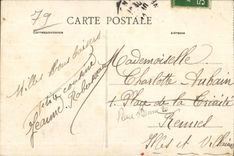 79
CARTE POSTALE
CORRESPONDANCE
ADRESSE
Mademoiselle
Charlotte Aubain
1 Place de la
Rennes
Ille et Vilaine
Mille bons baisers
petite cousine
Jeanne